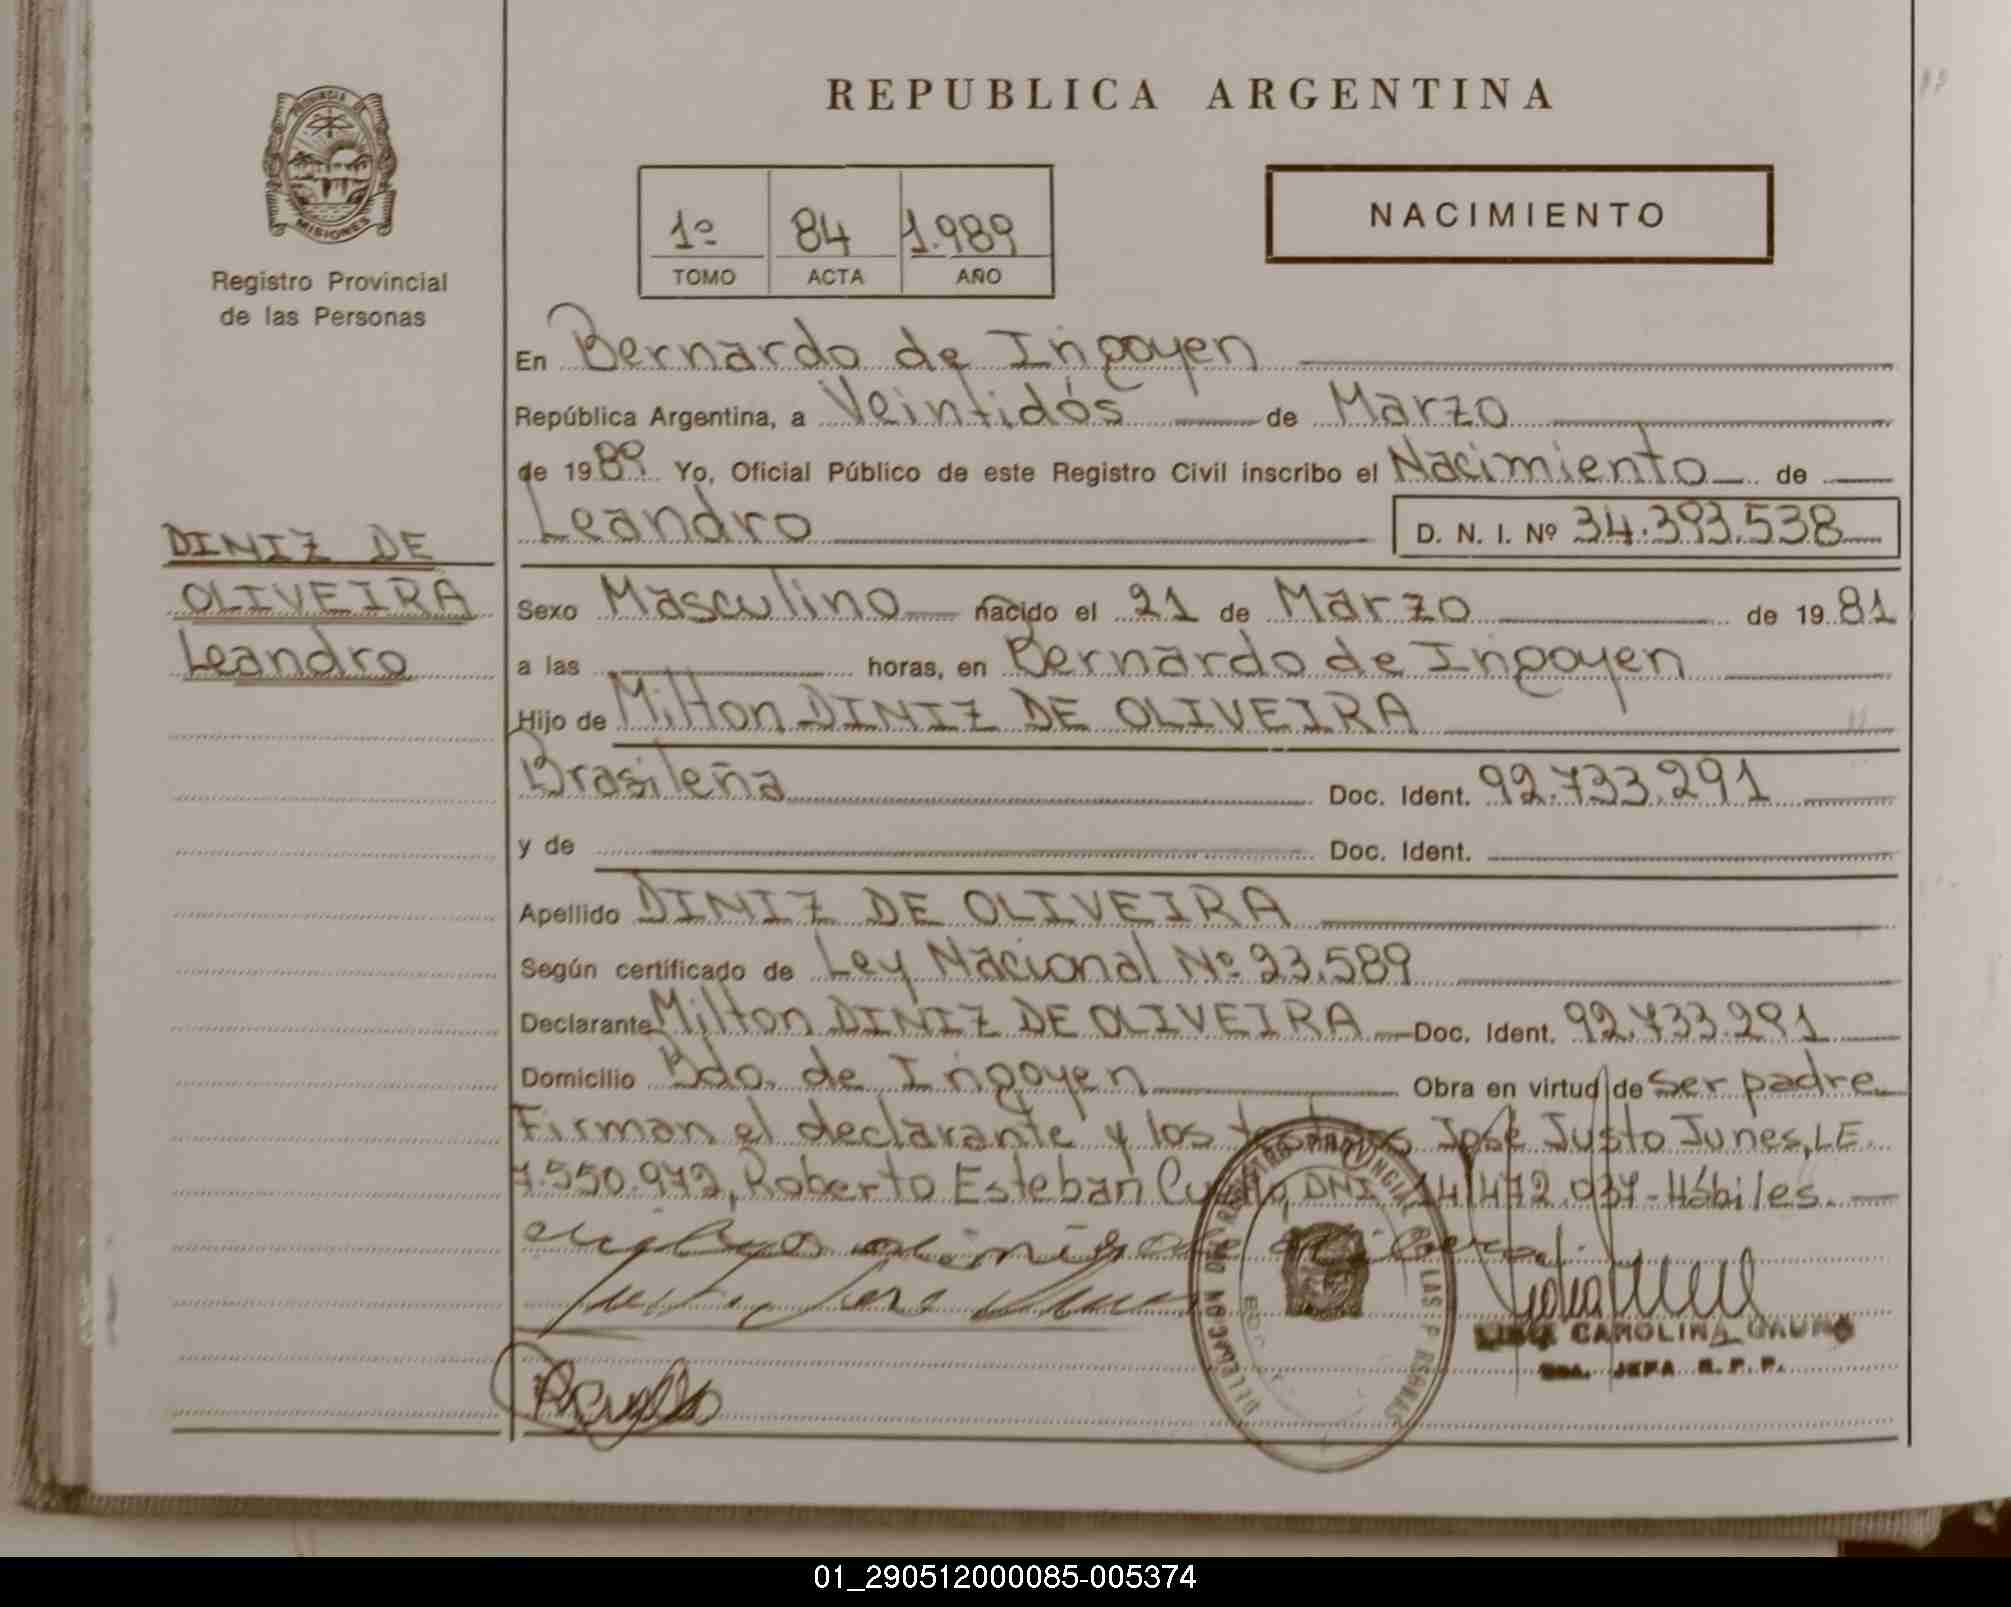 REPUBLICA ARGENTINA
PROVINCIA
MISIONES
Registro Provincial
de las Personas
1º 84 1.989
TOMO ACTA AÑO
NACIMIENTO
En Bernardo de Irigoyen
República Argentina, a Veintidós de Marzo
de 1989 Yo, Oficial Público de este Registro Civil inscribo el Nacimiento de
Leandro D. N. I. Nº 34.393.538
DINIZ DE
OLIVEIRA
Leandro
Sexo Masculino nacido el 21 de Marzo de 1981
a las horas, en Bernardo de Irigoyen
Hijo de Milton DINIZ DE OLIVEIRA
Brasileña Doc. Ident. 92.733.291
y de Doc. Ident.
Apellido DINIZ DE OLIVEIRA
Según certificado de Ley Nacional Nº 23.589
Declarante Milton DINIZ DE OLIVEIRA Doc. Ident. 92.733.291
Domicilio Bdo. de Irigoyen Obra en virtud de ser padre
Firman el declarante y los testigos José Justo Junes, LE.
7.550.972, Roberto Esteban DNI 14.472.937 - Hábiles.
CAROLINA
JEFA R. P. P.
01_290512000085-005374